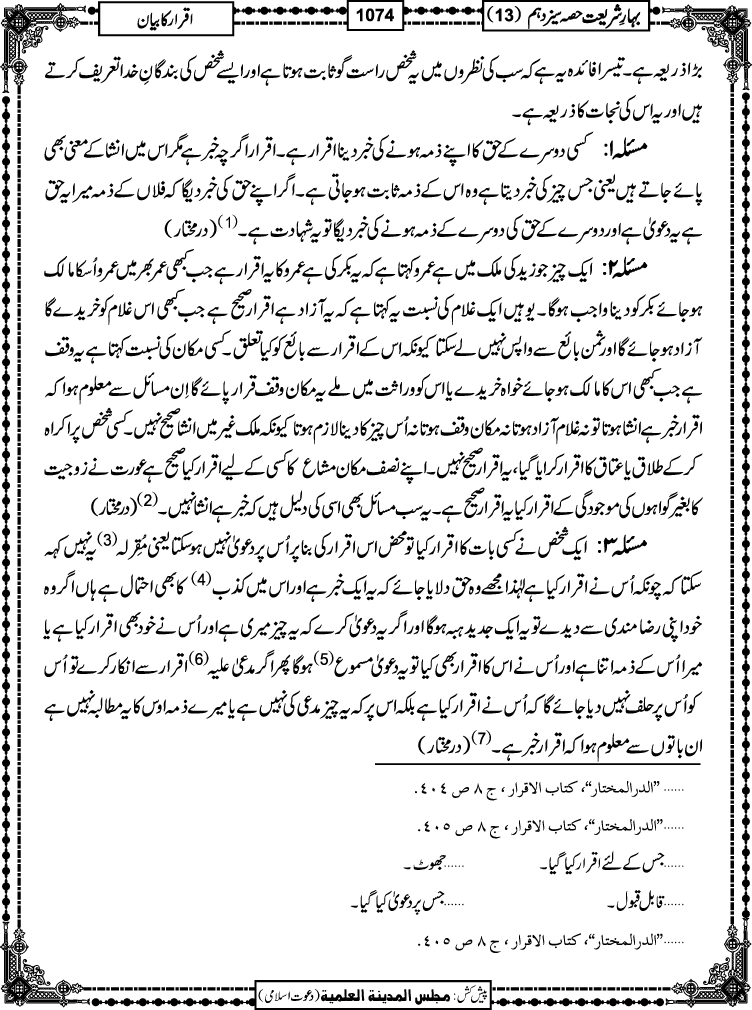 بہارِ شریعت حصہ سیزدہم (13)
1074
اقرار کا بیان
بڑا ذریعہ ہے۔ تیسرا فائدہ یہ ہے کہ سب کی نظروں میں یہ شخص راست گو ثابت ہوتا ہے اور ایسے شخص کی بندگانِ خدا تعریف کرتے
ہیں اور یہ اس کی نجات کا ذریعہ ہے۔
مسئلہ ۱: کسی دوسرے کے حق کا اپنے ذمہ ہونے کی خبر دینا اقرار ہے۔ اقرار اگرچہ خبر ہے مگر اس میں انشا کے معنی بھی
پائے جاتے ہیں یعنی جس چیز کی خبر دیتا ہے وہ اس کے ذمہ ثابت ہو جاتی ہے۔ اگر اپنے حق کی خبر دیگا کہ فلاں کے ذمہ میرا یہ حق
ہے یہ دعویٰ ہے اور دوسرے کے حق کی دوسرے کے ذمہ ہونے کی خبر دیگا تو یہ شہادت ہے۔(1) (درمختار)
مسئلہ ۲: ایک چیز جو زید کی ملک میں ہے عمرو کہتا ہے کہ یہ بکر کی ہے عمرو کا یہ اقرار ہے جب کبھی عمر بھر میں عمرو اُسکا مالک
ہو جائے بکر کو دینا واجب ہوگا۔ یوہیں ایک غلام کی نسبت یہ کہتا ہے کہ یہ آزاد ہے اقرار صحیح ہے جب کبھی اس غلام کو خریدے گا
آزاد ہو جائے گا اور ثمن بائع سے واپس نہیں لے سکتا کیونکہ اس کے اقرار سے بائع کو کیا تعلق۔ کسی مکان کی نسبت کہتا ہے یہ وقف
ہے جب کبھی اس کا مالک ہو جائے خواہ خریدے یا اس کو وراثت میں ملے یہ مکان وقف قرار پائے گا اِن مسائل سے معلوم ہوا کہ
اقرار خبر ہے انشا ہوتا تو نہ غلام آزاد ہوتا نہ مکان وقف ہوتا نہ اُس چیز کا دینا لازم ہوتا کیونکہ ملک غیر میں انشا صحیح نہیں۔ کسی شخص پر اکراہ
کر کے طلاق یا عتاق کا اقرار کرایا گیا، یہ اقرار صحیح نہیں۔ اپنے نصف مکان مشاع کا کسی کے لیے اقرار کیا صحیح ہے عورت نے زوجیت
کا بغیر گواہوں کی موجودگی کے اقرار کیا یہ اقرار صحیح ہے۔ یہ سب مسائل بھی اسی کی دلیل ہیں کہ خبر ہے انشا نہیں۔(2) (درمختار)
مسئلہ ۳: ایک شخص نے کسی بات کا اقرار کیا تو محض اس اقرار کی بنا پر اُس پر دعویٰ نہیں ہو سکتا یعنی مُقرلہ (3) یہ نہیں کہہ
سکتا کہ چونکہ اُس نے اقرار کیا ہے لہٰذا مجھے وہ حق دلایا جائے کہ یہ ایک خبر ہے اور اس میں کذب (4) کا بھی احتمال ہے ہاں اگر وہ
خود اپنی رضا مندی سے دیدے تو یہ ایک جدید ہبہ ہوگا اور اگر یہ دعویٰ کرے کہ یہ چیز میری ہے اور اُس نے خود بھی اقرار کیا ہے یا
میرا اُس کے ذمہ اتنا ہے اور اُس نے اس کا اقرار بھی کیا تو یہ دعویٰ مسموع (5) ہوگا پھر اگر مدعیٰ علیہ (6) اقرار سے انکار کرے تو اُس
کو اُس پر حلف نہیں دیا جائے گا کہ اُس نے اقرار کیا ہے بلکہ اس پر کہ یہ چیز مدعی کی نہیں ہے یا میرے ذمہ اوس کا یہ مطالبہ نہیں ہے
ان باتوں سے معلوم ہوا کہ اقرار خبر ہے۔(7) (درمختار)
......”الدرالمختار“، کتاب الاقرار ، ج ٨ ص ٤٠٤.
......”الدرالمختار“، کتاب الاقرار ، ج ٨ ص ٤٠٥.
......جس کے لئے اقرار کیا گیا۔ ......جھوٹ۔
......قابل قبول۔ ......جس پر دعویٰ کیا گیا۔
......”الدرالمختار“، کتاب الاقرار ، ج ٨ ص ٤٠٥.
پیش کش: مجلس المدينة العلمية (دعوت اسلامی)